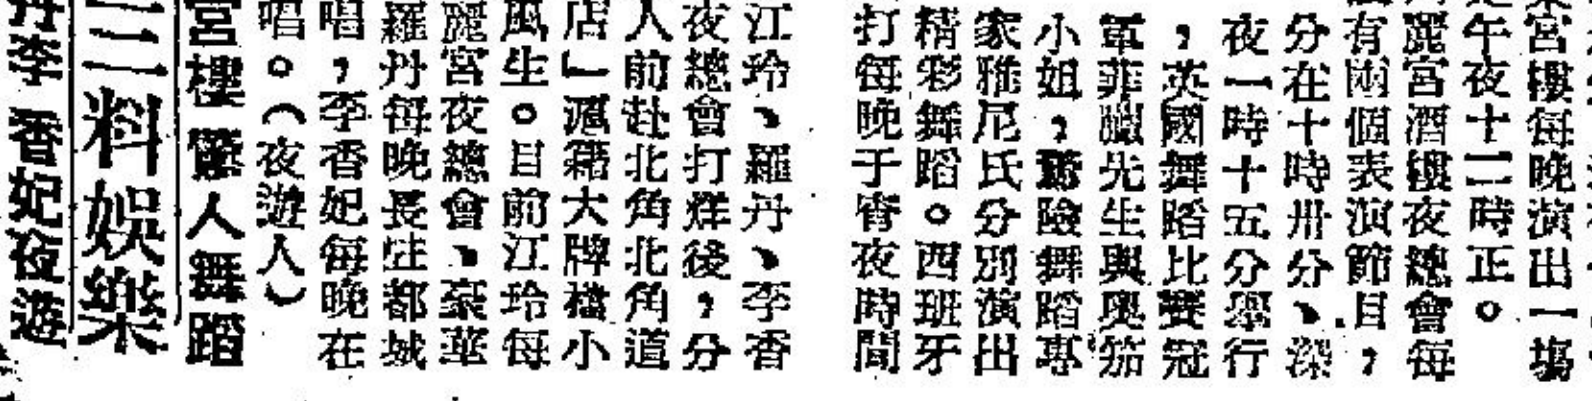 宮樓每晚演出一場
午夜十二時正。
麗宮酒樓夜總會每
有兩個表演節目，
分在十時卅分、深
夜一時十五分舉行
，英國舞蹈比賽冠
軍菲臘先生與奧笳
小姐，驚險舞蹈專
家雅尼氏分別演出
精彩舞蹈。西班牙
打每晚于宵夜時間
江玲、羅丹、李香
夜總會打烊後，分
人前赴北角北角道
店」滬籍大牌檔小
風生。目前江玲每
麗宮夜總會、豪華
羅丹每晚長駐都城
唱，李香妃每晚在
唱。（夜遊人）
宮樓驚人舞蹈
三料娛樂
丹李香妃夜遊